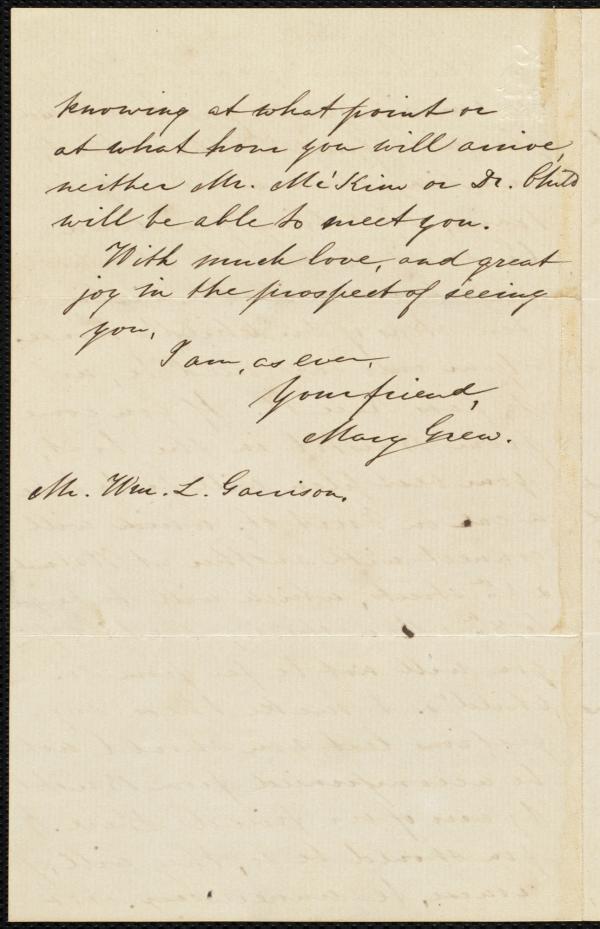 knowing at what point or
at what hour you will arrive,
neither Mr. McKim or Dr. Child
will be able to meet you.
With much love, and great
joy in the prospect of seeing
you,
I am, as ever,
Your friend,
Mary Grew.
Mr. Wm. L. Garrison.